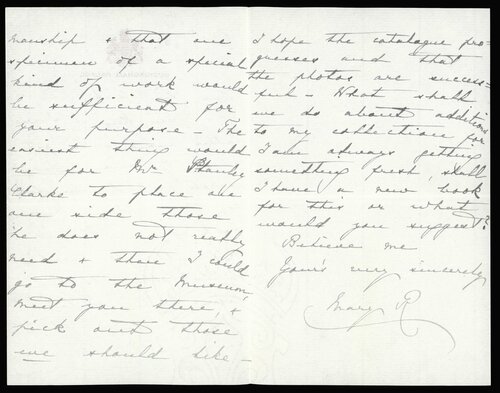 manship & that one
specimen of a special
kind of work would
be sufficient for
your purpose – The
easiest thing would
be for Mr Stanley
Clarke to place on
one side those
he does not really
need & then I could
go to the Museum,
meet you there, &
pick out those
we should like –
I hope the catalogue pro-
gresses and that
the photos are success-
ful – What shall
we do about additions
to my collection for
I am always getting
something fresh, shall
I have a new book
for this or what
would you suggest?
Believe me
Yours very sincerely
Mary R